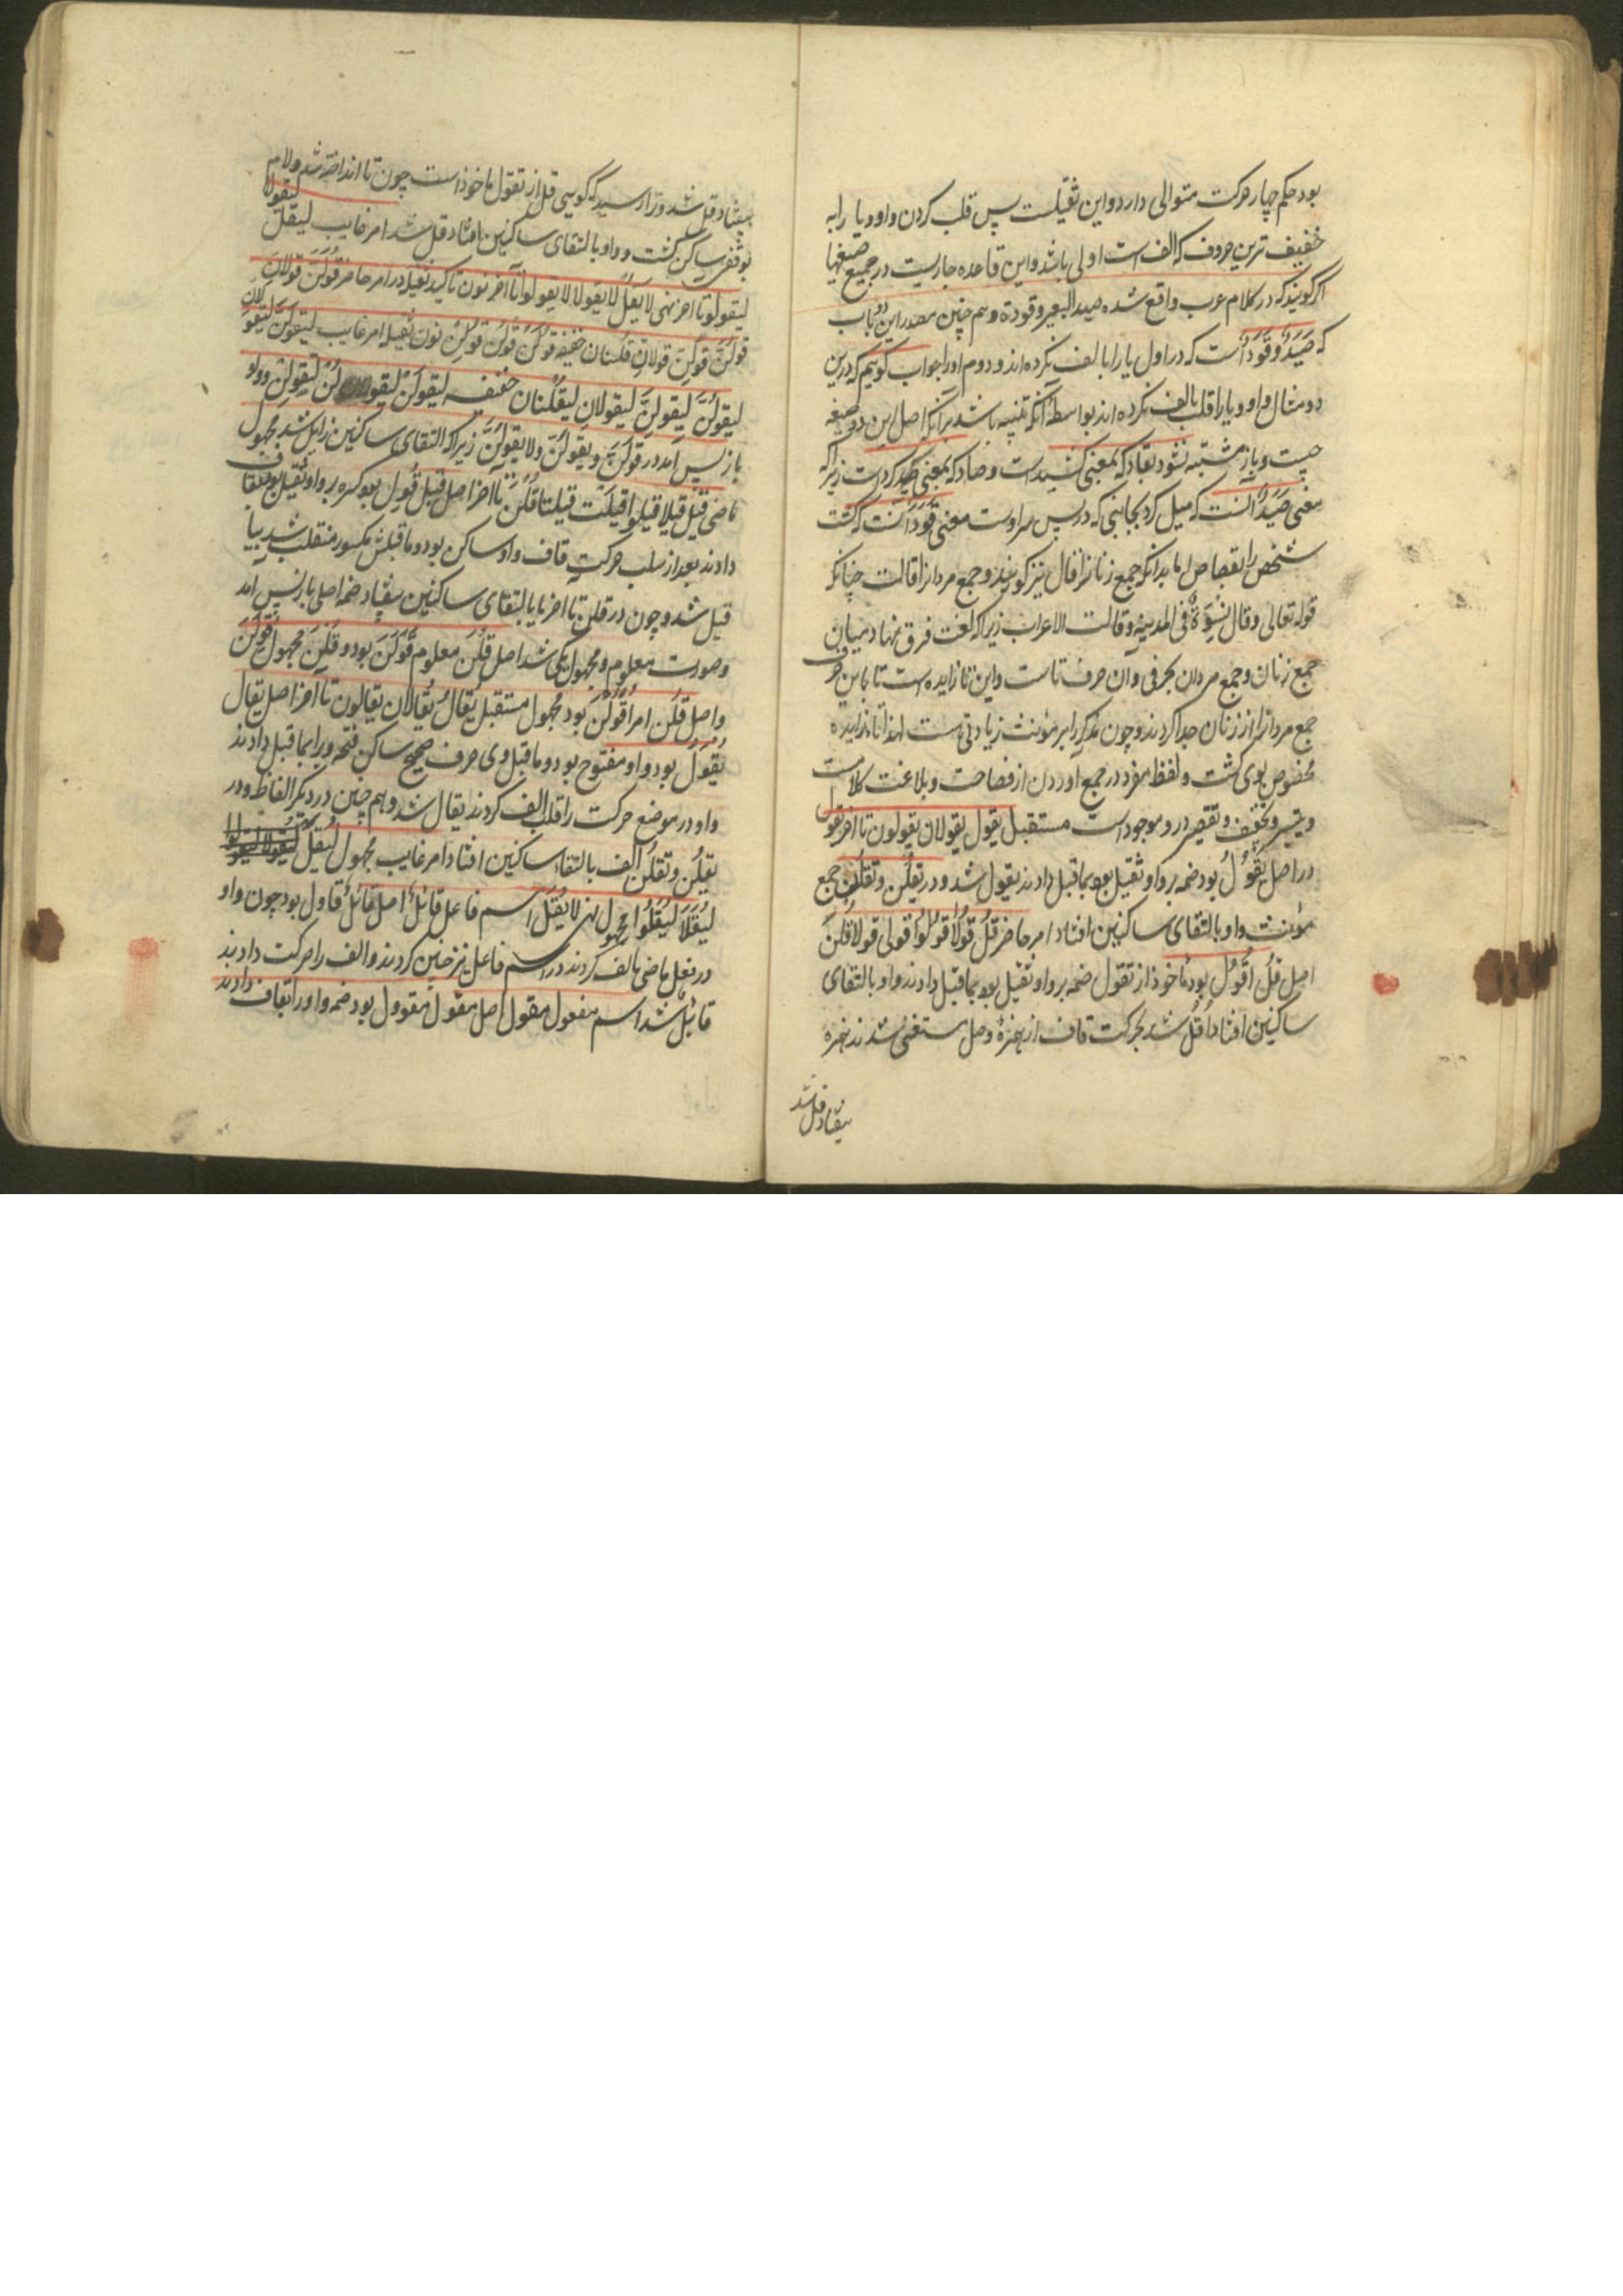 بود حکم چهار حرکت متوالی دارد و این ثقیلست پس قلب کردن واو و یا را به
خفیف ترین حروف که الف است اولی باشد و این قاعده جاریست در جمیع صیغها
اگر گویند که در کلام عرب واقع شده صید البعیر و قودة و هم چنین مصدر این دو باب
که صَیَدًا و قَوَدًا است که در اول یا را با لف نکرده اند و دوم او را جواب گوییم که درین
دو مثال واو و یا را قلب بالف نکرده اند بواسطه آنکه تنبیه باشد بر آنکه اصل این دو صیغه
چیست و باز مشتبه نشود بقاد که بمعنی کشیدست و صاد که بمعنی صید کردست زیرا که
معنی صَیَدًا آنست که میل کرد بجانبی که در پس سر اوست معنی قَوَدًا آنست که کشت
شخص را بقصاص اما بدانکه جمع زنانرا قال نیز گویند و جمع مردانرا قالت چنانکه
قوله تعالی و قال نِسْوَةٌ فی المدینه و قالت الاعراب زیرا که لغت فرق نهاد میان
جمع زنان و جمع مردان بحرفی و آن حرف تاست و این تا زایده است تا باین حرف
جمع مردانرا از زنان جدا کردند و چون مذکر را بر مؤنث زیادتی است لهذا تا زایده
مخصوص بوی گشت و لفظ مفرد در جمع آوردن از فصاحت و بلاغت کلامست
و تخفیف و تقصیر در و موجود است مستقبل یقول یقولان یقولون تا آخر یقول
در اصل یَقْوُلُ بود ضمه بر واو ثقیل بود بما قبل دادند یقول شد و در یقلن و تقلن جمع
مؤنث واو بالتقای ساکنین افتاد امر حاضر قُلْ قُولَا قُولُوا قولی قولا قُلنَ
اصل قُلْ اُقْوُلْ بود ماخوذ از تقول ضمه بر واو ثقیل بود بما قبل دادند واو بالتقای
ساکنین افتاد اُقُلْ شد بحرکت قاف از همزهٔ وصل مستغنی شدند همزه
بیفتاد قل شد
بیفتاد قل شد و ترا رسید که گویی قل از تقول ماخوذ است چون تا انداخته شد و لام
بوقف ساکن گشت و واو بالتقای ساکنین افتاد قل شد امر غایب لیقل لیقولا
لیقولوا تا آخر نهی لا یَقُلْ لا یقولا لا یقولوا تا آخر نون تاکید ثقیله در امر حاضر قُولَنَّ قولانِّ
قولُنَّ قولِنَّ قولانِّ قلنانِّ خفیفه قولَنْ قولُنْ قولِنْ نون ثقیله امر غایب لیقولَنَّ لیقولانِّ
لیقولُنَّ لِتقولَنَّ لتقولانِّ لیقلنانِّ خفیفه لیقولَنْ لیقولُنْ لتقولَنْ و واو
باز پس آمد در قولَنَّ و یقولَنَّ و لا یقولَنَّ زیرا که التقای ساکنین زایل شد مجهول
ماضی قیل قیلا قیلوا قیلَتْ قیلتا قُلْنَ تا آخر اصل قیل قُوِلَ بود کسره بر واو ثقیل بود بقاف
دادند بعد از سلب حرکت قاف واو ساکن بود و ما قبلش مکسور منقلب شد بیا
قیل شد و چون در قلن تا آخر یا بالتقای ساکنین بیفتاد ضمه اصلی باز پس آمد
و صورت معلوم و مجهول یکی شد اصل قُلْنَ معلوم قَوَلْنَ بود و قُلْنَ مجهول قُوِلْنَ
و اصل قُلْنَ امر اُقْوُلْنَ بود مجهول مستقبل یُقَالُ یُقالانِ یقالون تا آخر اصل یقال
یُقْوَلُ بود واو مفتوح بود و ما قبل وی حرف صحیح ساکن فتحه ویرا بما قبل دادند
واو در موضع حرکت را قلب الف کردند یقال شد و هم چنین در دیگر الفاظ و در
یقلن و تقلن الف بالتقاء ساکنین افتاد امر غایب مجهول لیُقَلْ
لِیُقَلَا لِیُقَلُوا مجهول نهی لا یُقَلْ اسم فاعل قائلٌ اصل قائلٌ قاول بود چون واو
در فعل ماضی الف کردند در اسم فاعل نیز چنین کردند و الف را حرکت دادند
قائلٌ شد اسم مفعول مقول اصل مقول مقوول بود ضمه واو را بقاف دادند